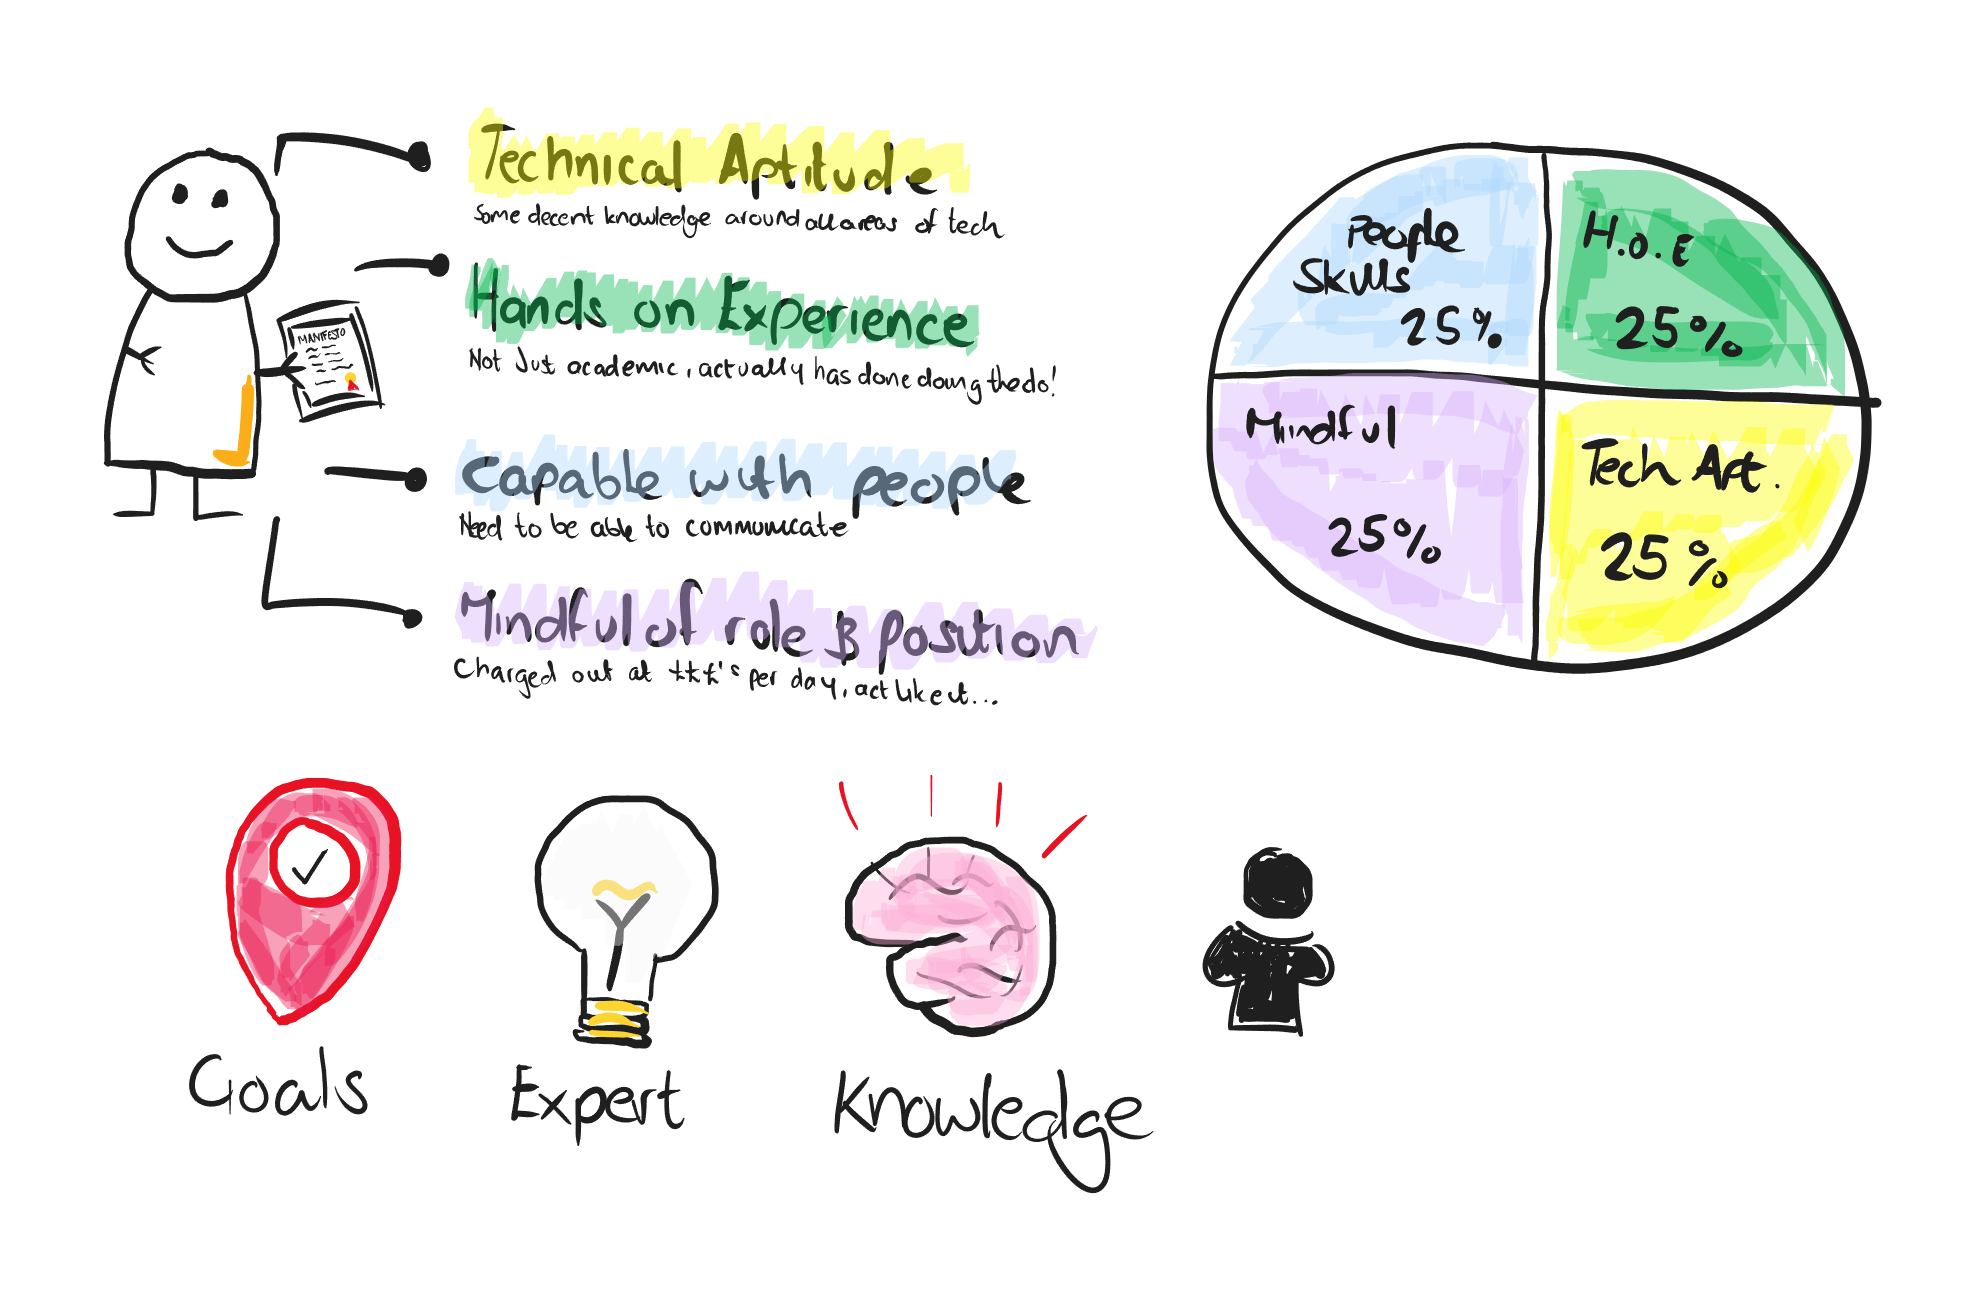 Technical Aptitude
Some decent knowledge around all areas of tech
Hands on Experience
Not Just academic, actually has done doing the do!
Capable with people
Need to be able to communicate
Mindful of role & position
Charged out at £££'s per day, act like it...
MANIFESTO
People
Skills
25%
H.O.E
25%
Mindful
25%
Tech Apt.
25%
Goals
Expert
Knowledge